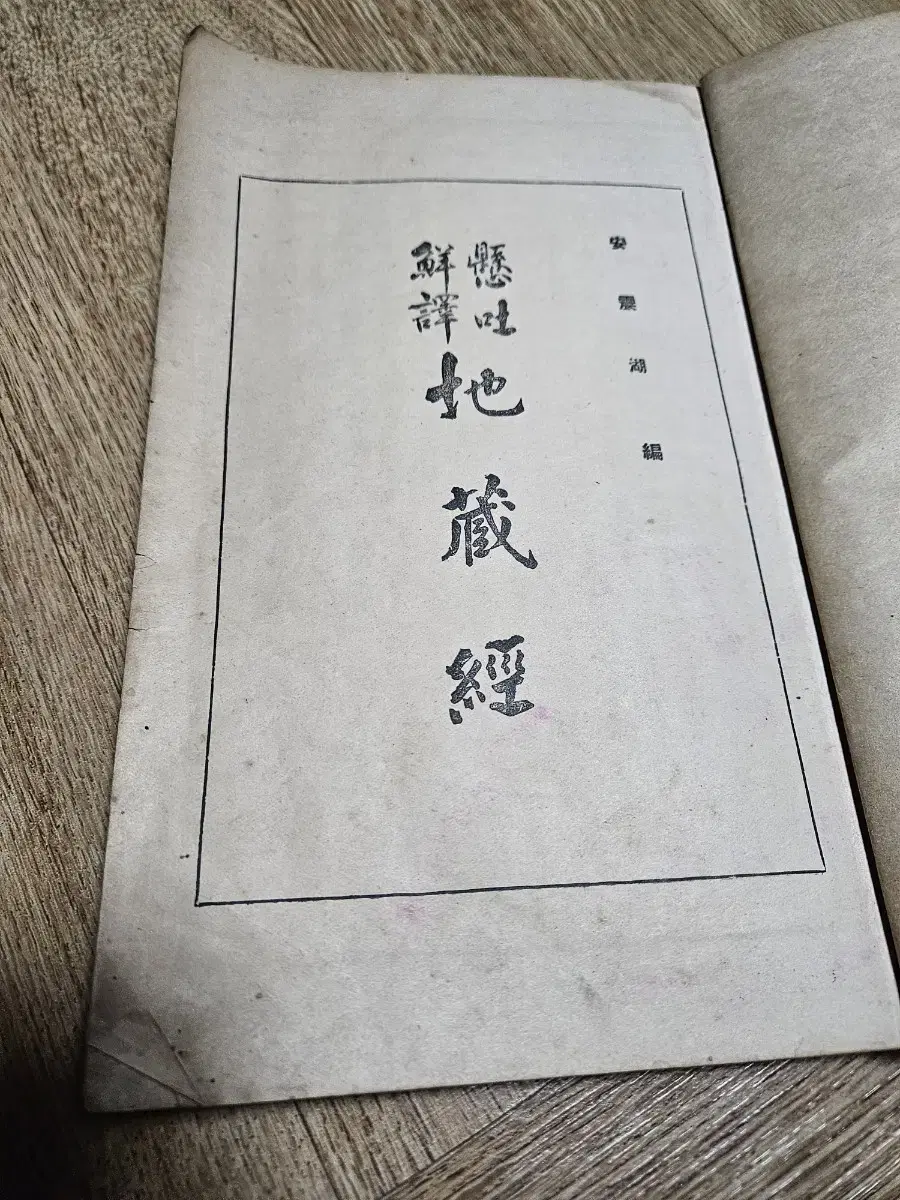 安震湖編
懸吐
鮮譯
地藏經